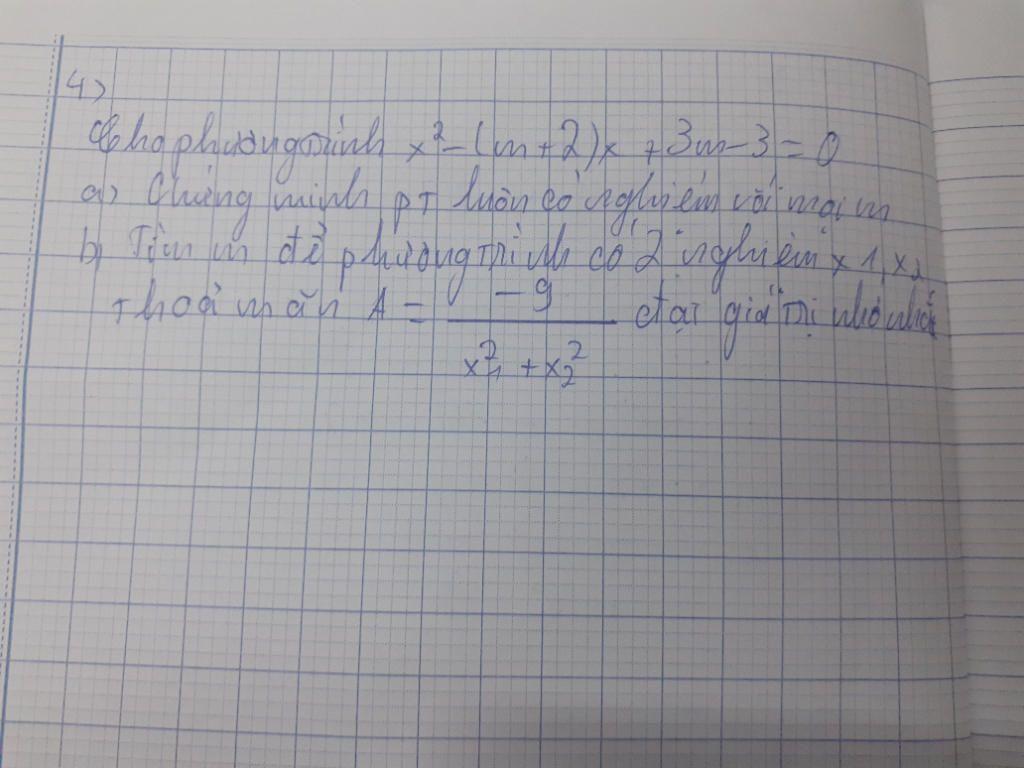 4)
Cho phương trình x² - (m+2)x + 3m - 3 = 0
a) Chứng minh pT luôn có nghiệm với mọi m
b) Tìm m để phương trình có 2 nghiệm x1, x2
thoả mãn A = -9 / (x₁² + x₂²) đạt giá trị nhỏ nhất